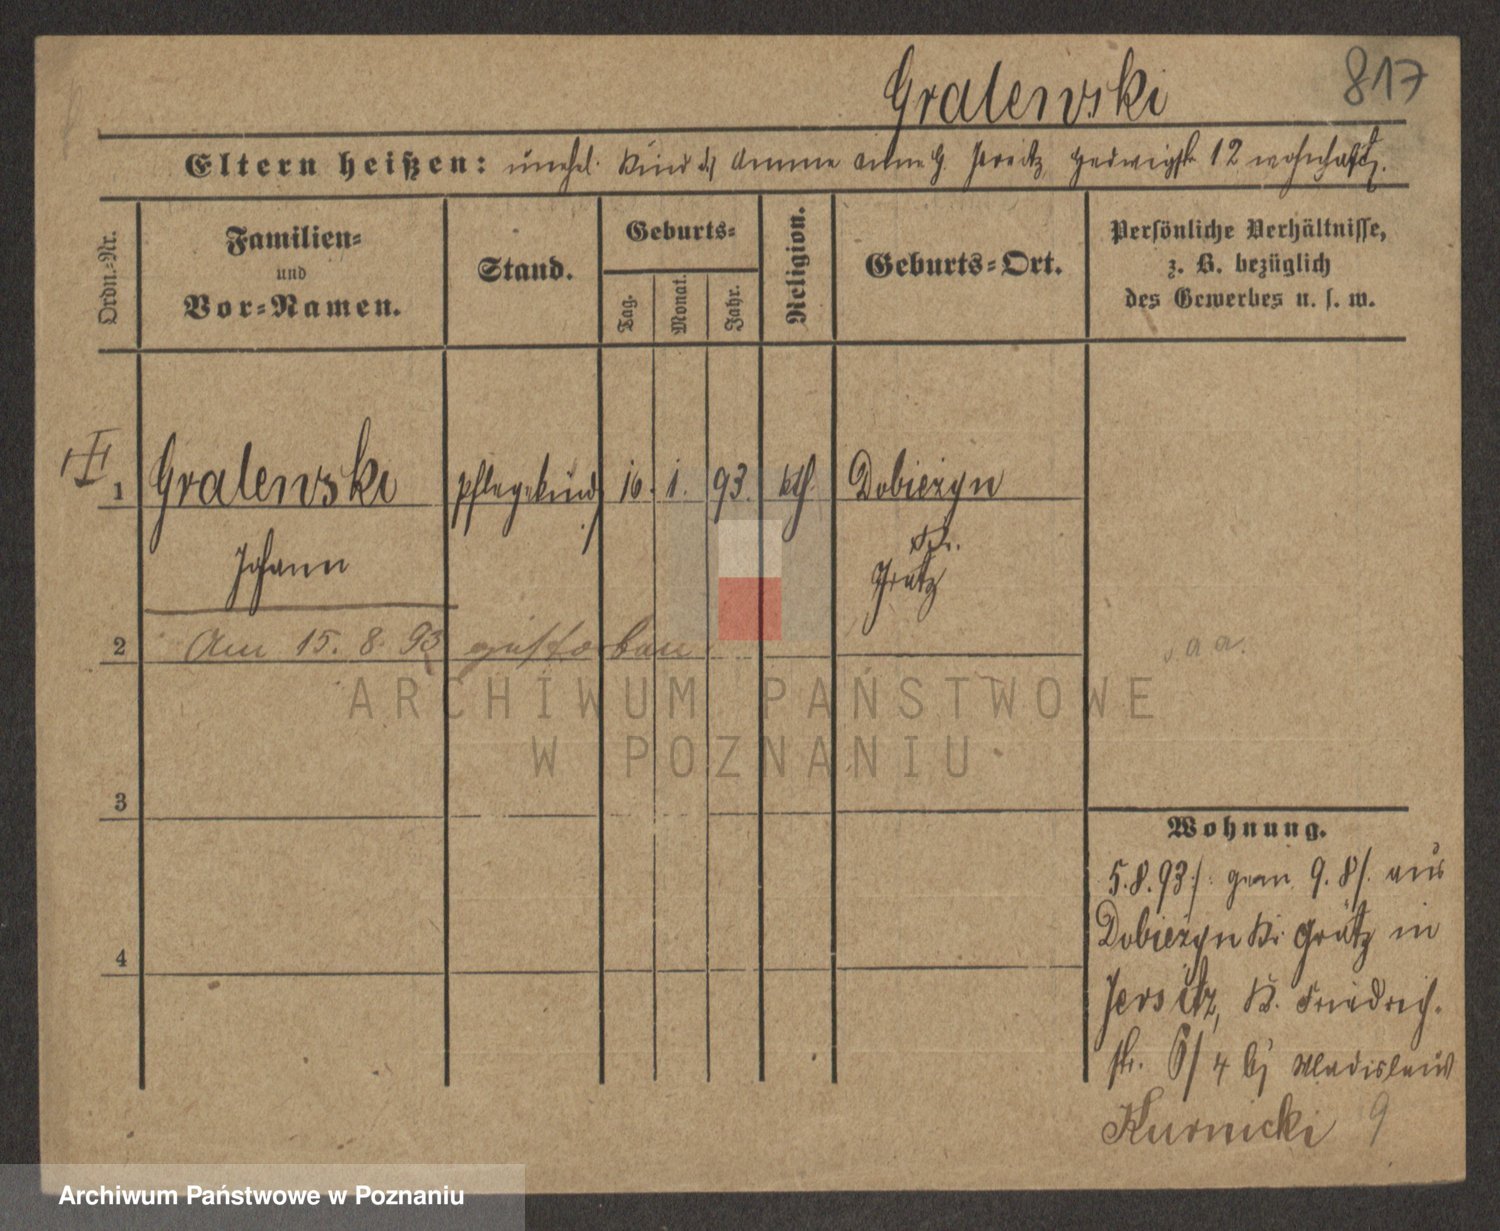 Gralewski
817
Eltern heißen: unehel. Kind d. Amme Anne G. Jersitz, Hedwigstr. 12 wohnhaft.
Ordn.-Nr.
Familien-
und
Vor-Namen.
Stand.
Geburts-
Tag.
Monat.
Jahr.
Religion.
Geburts-Ort.
Persönliche Verhältnisse,
z. B. bezüglich
des Gewerbes u. s. w.
1 Gralewski Pflegekind 16. 1. 93. kth. Dobieżyn
Johann
Kr.
Grätz
2 Am 15. 8. 93 gestorben.
3
4
Wohnung.
5.8.93/. gem. 9.8/. aus
Dobieżyn Kr. Grätz in
Jersitz, K. Friedrich-
str. 6/4 bj Wladislaus
Kurnicki 9
ARCHIWUM PAŃSTWOWE
W POZNANIU
Archiwum Państwowe w Poznaniu